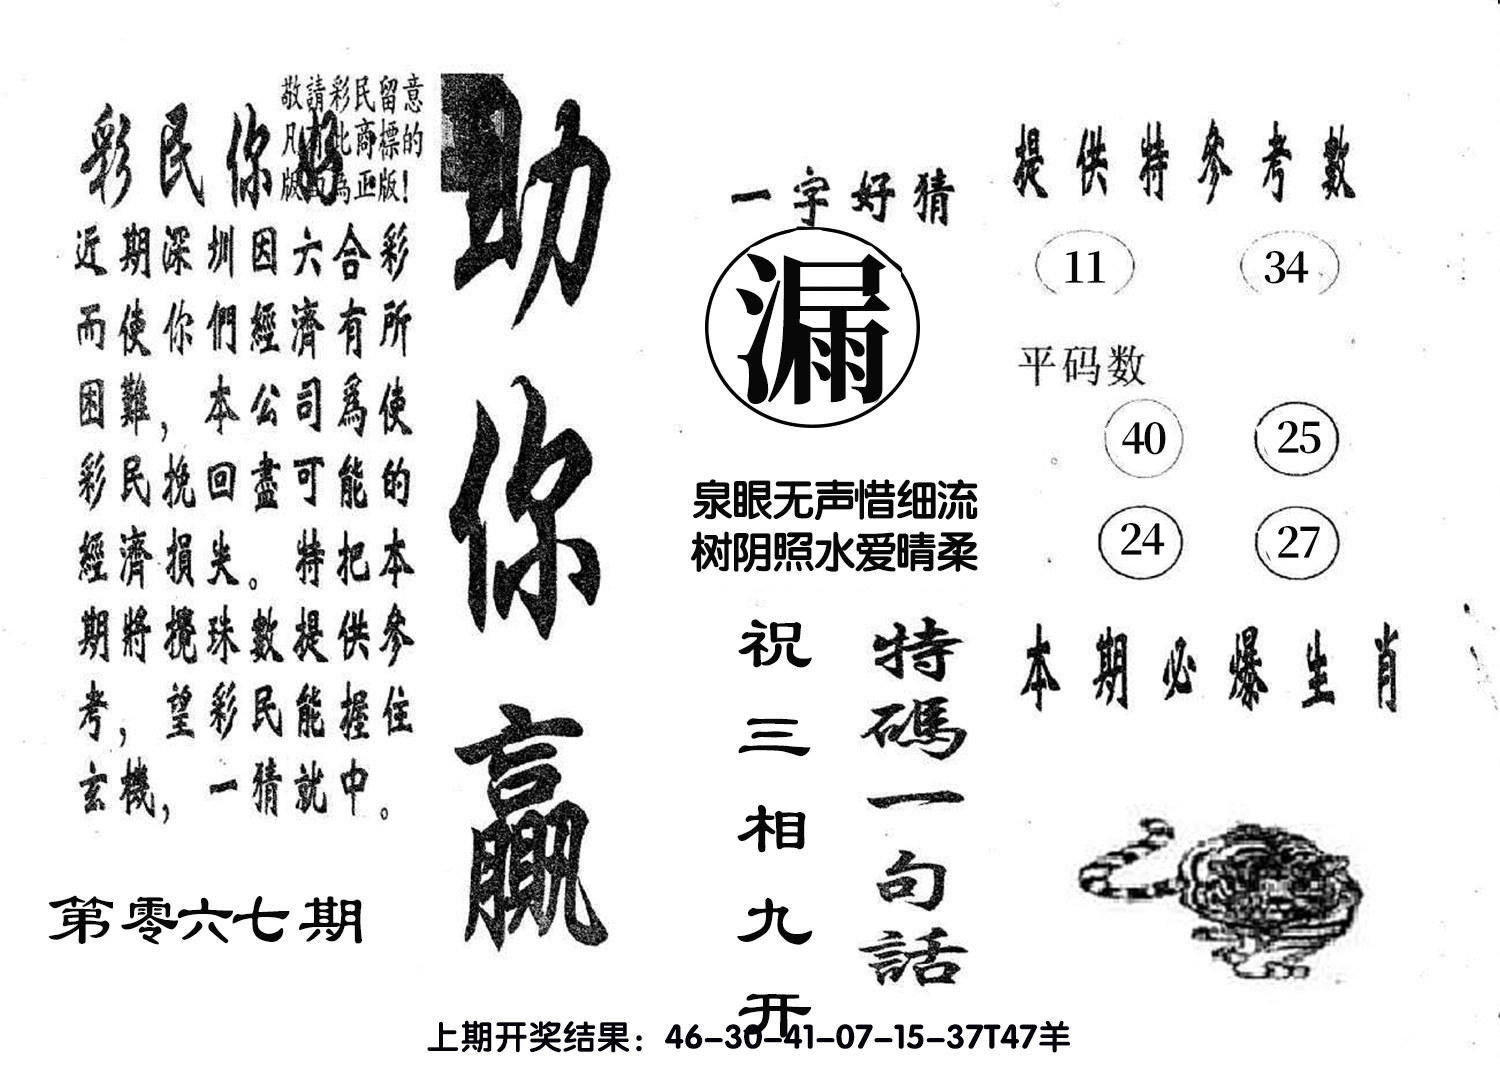 敬請彩民留意
凡有此商標的
版面為正版！
彩民你好
近期深圳因六合彩
而使你們經濟有所
困難，本公司爲使
彩民挽回盡可能的
經濟損失。特把本
期將攪珠數提供參
考，望彩民能握住
玄機，一猜就中。
第零六七期
助你贏
一字好猜
漏
泉眼无声惜细流
树阴照水爱晴柔
特碼一句話
祝三相九开
提供特参考數
11 34
平码数
40 25
24 27
本期必爆生肖
上期开奖结果：46-30-41-07-15-37T47羊